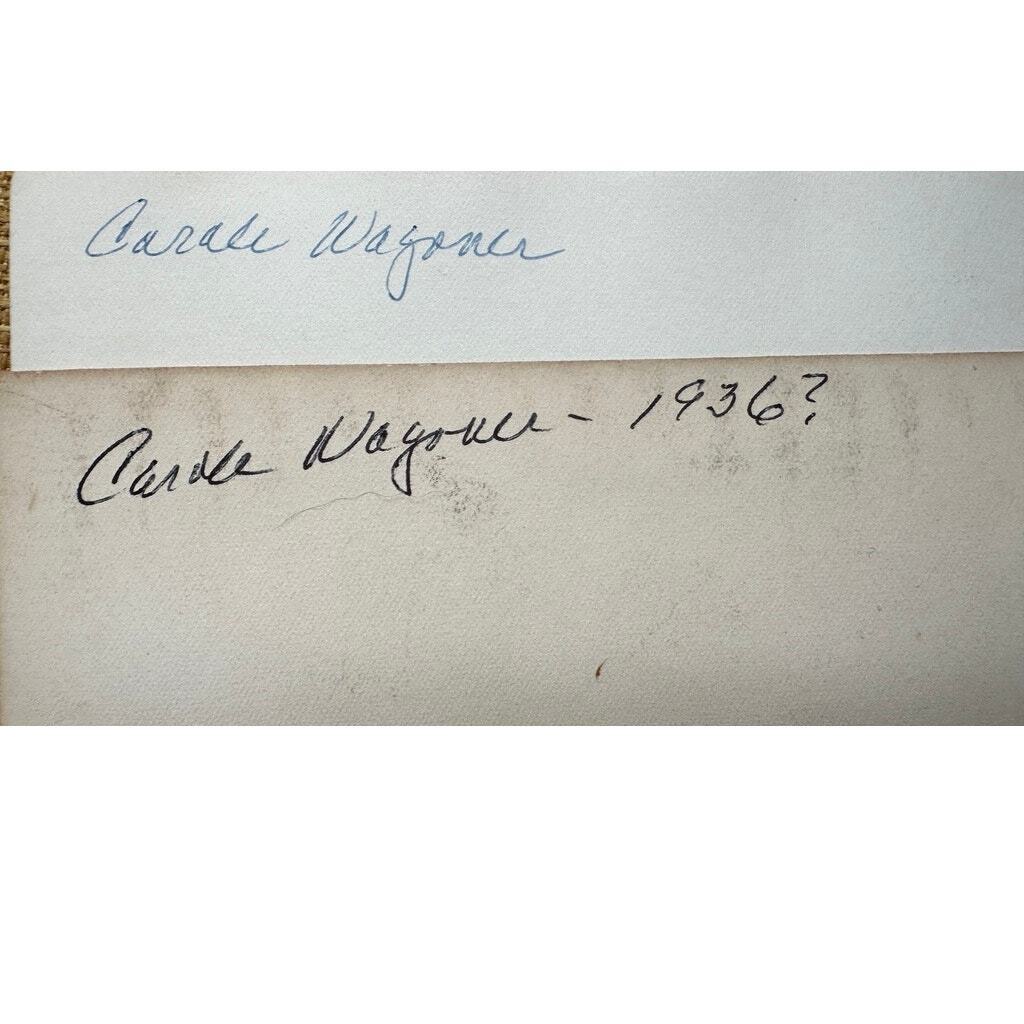 Carole Wagoner
Carole Wagoner - 1936?